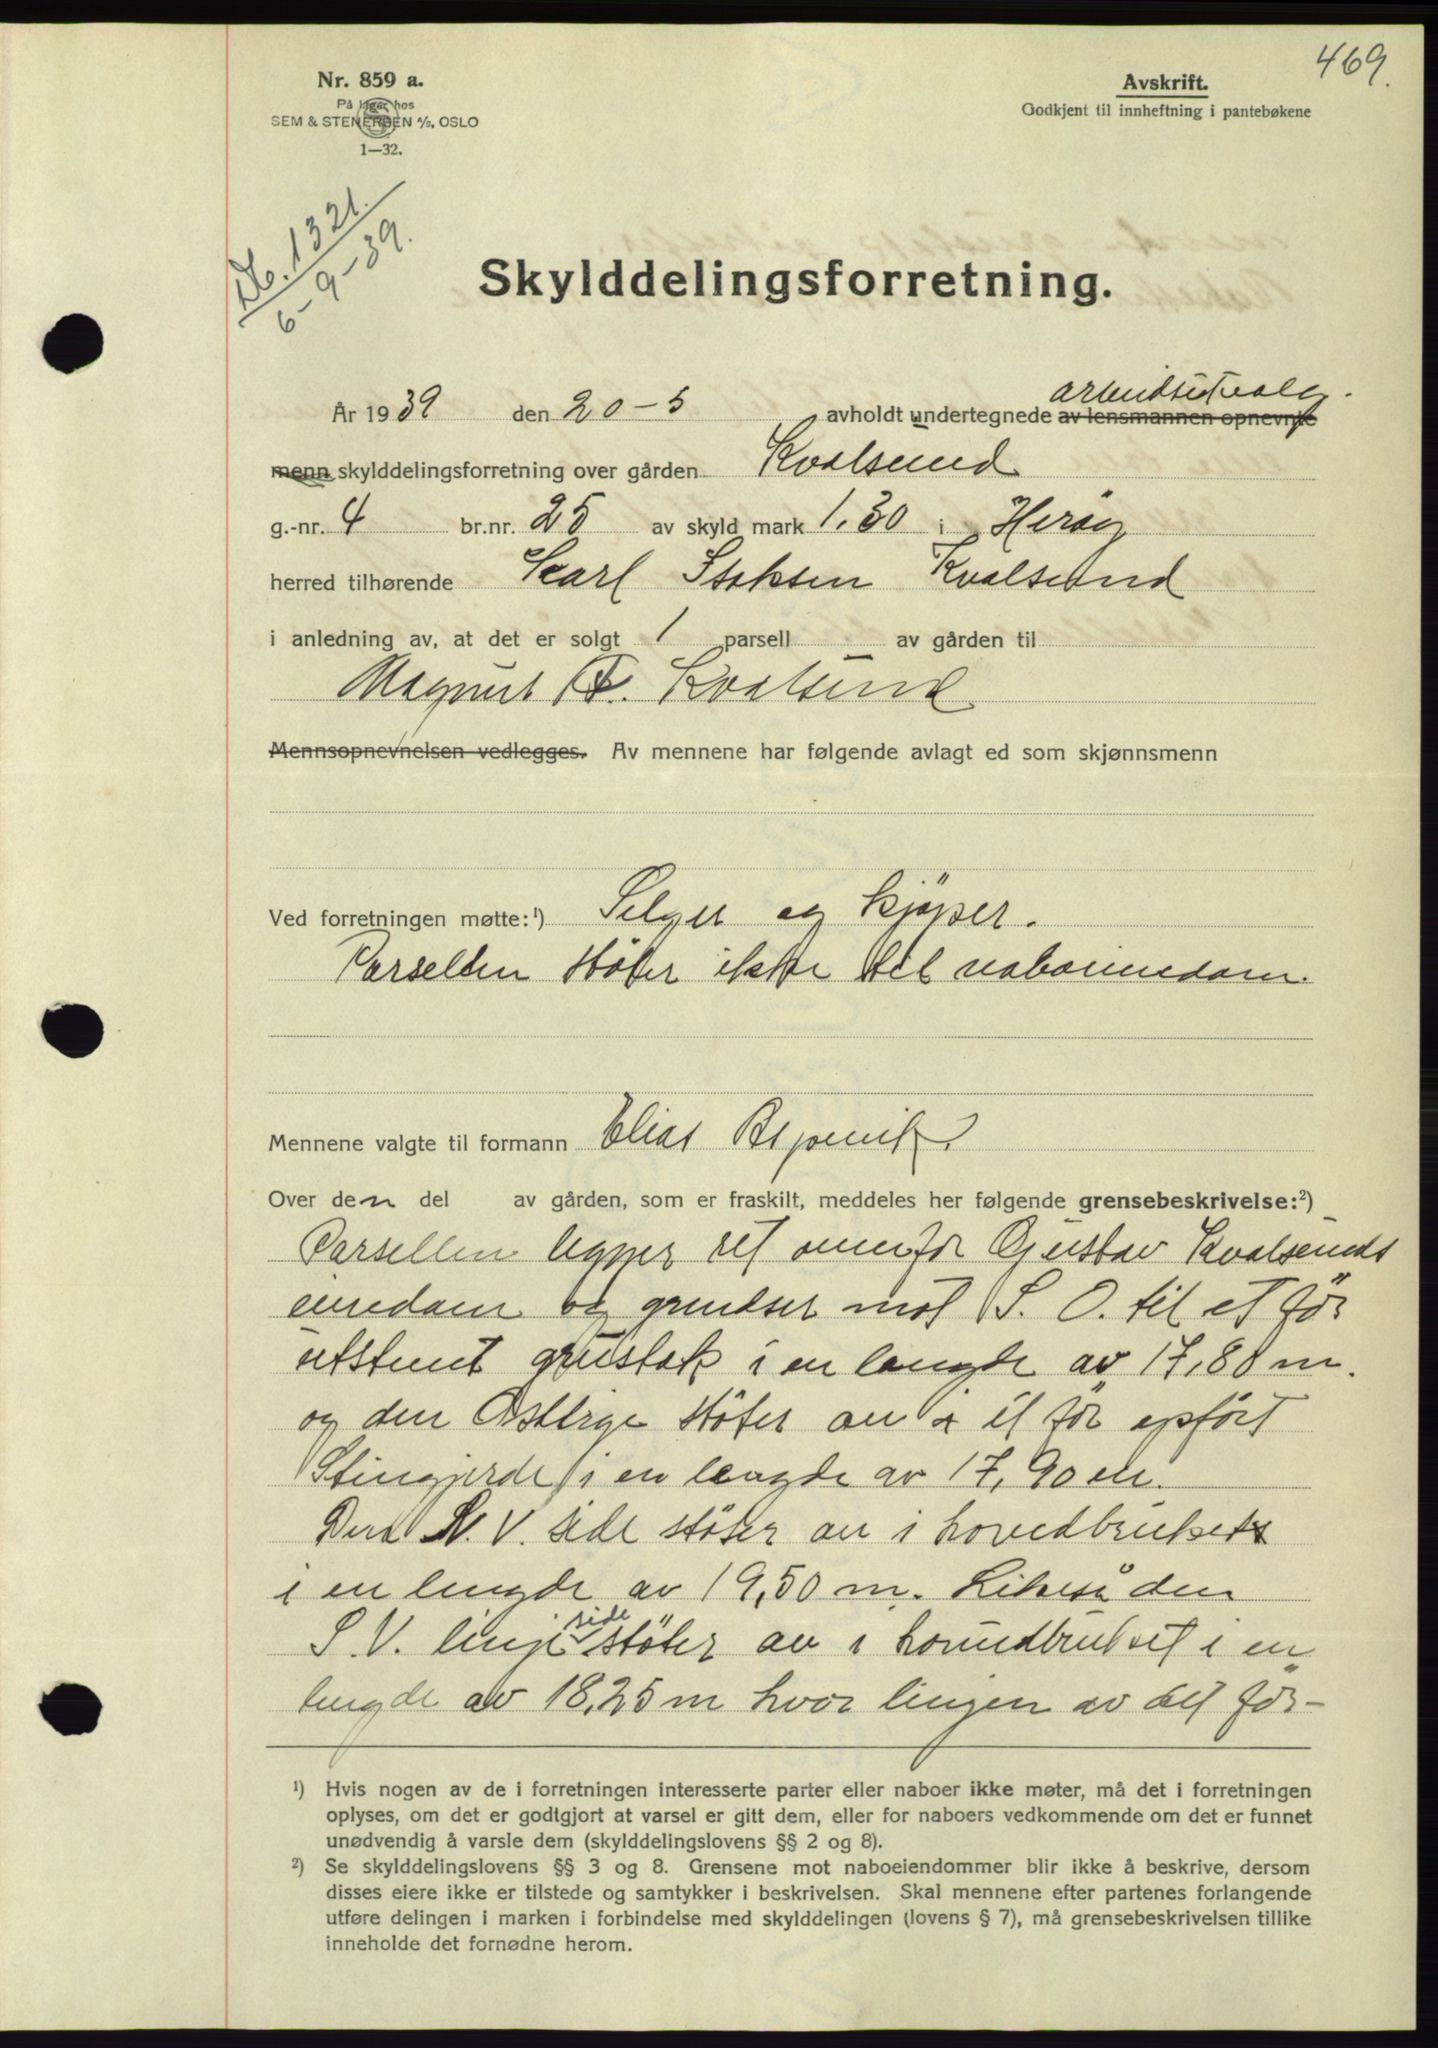 469.
Nr. 859 a.
På lager hos
SEM & STENERSEN A/S, OSLO
1—32.
Avskrift.
Godkjent til innheftning i pantebøkene
Db. 1321.
6-9-39.
Skylddelingsforretning.
arbeidsutvalg.
År 1939 den 20-5 avholdt undertegnede av lensmannen opnevnte
menn skylddelingsforretning over gården Kvalsund
g.-nr. 4 br.nr. 25 av skyld mark 1.30 i Herøy
herred tilhørende Karl Kvalsund
i anledning av, at det er solgt 1 parsell av gården til
Magnus Kvalsund
Mennsopnevnelsen vedlegges. Av mennene har følgende avlagt ed som skjønnsmenn
Ved forretningen møtte:¹) Selger og kjøper.
Parsellen støter ikke til naboeiendom.
Mennene valgte til formann Elias
Over den del av gården, som er fraskilt, meddeles her følgende grensebeskrivelse:²)
Parsellen ligger ret ovenfor Gustav Kvalsunds
eiendom og grendser mot S. O. til et før
utstukt grustak i en lengde av 17,80 m.
og den Østlige støter an i et før opført
Stengjerde i en lengde av 17,90 m.
Den N. V. side støter an i hovedbruket
i en lengde av 19,50 m. Likeså den
side
S. V. linje støter an i hovedbruket i en
lengde av 18,25 m hvor linjen av det før-
¹) Hvis nogen av de i forretningen interesserte parter eller naboer ikke møter, må det i forretningen
oplyses, om det er godtgjort at varsel er gitt dem, eller for naboers vedkommende om det er funnet
unødvendig å varsle dem (skylddelingslovens §§ 2 og 8).
²) Se skylddelingslovens §§ 3 og 8. Grensene mot naboeiendommer blir ikke å beskrive, dersom
disses eiere ikke er tilstede og samtykker i beskrivelsen. Skal mennene efter partenes forlangende
utføre delingen i marken i forbindelse med skylddelingen (lovens § 7), må grensebeskrivelsen tillike
inneholde det fornødne herom.